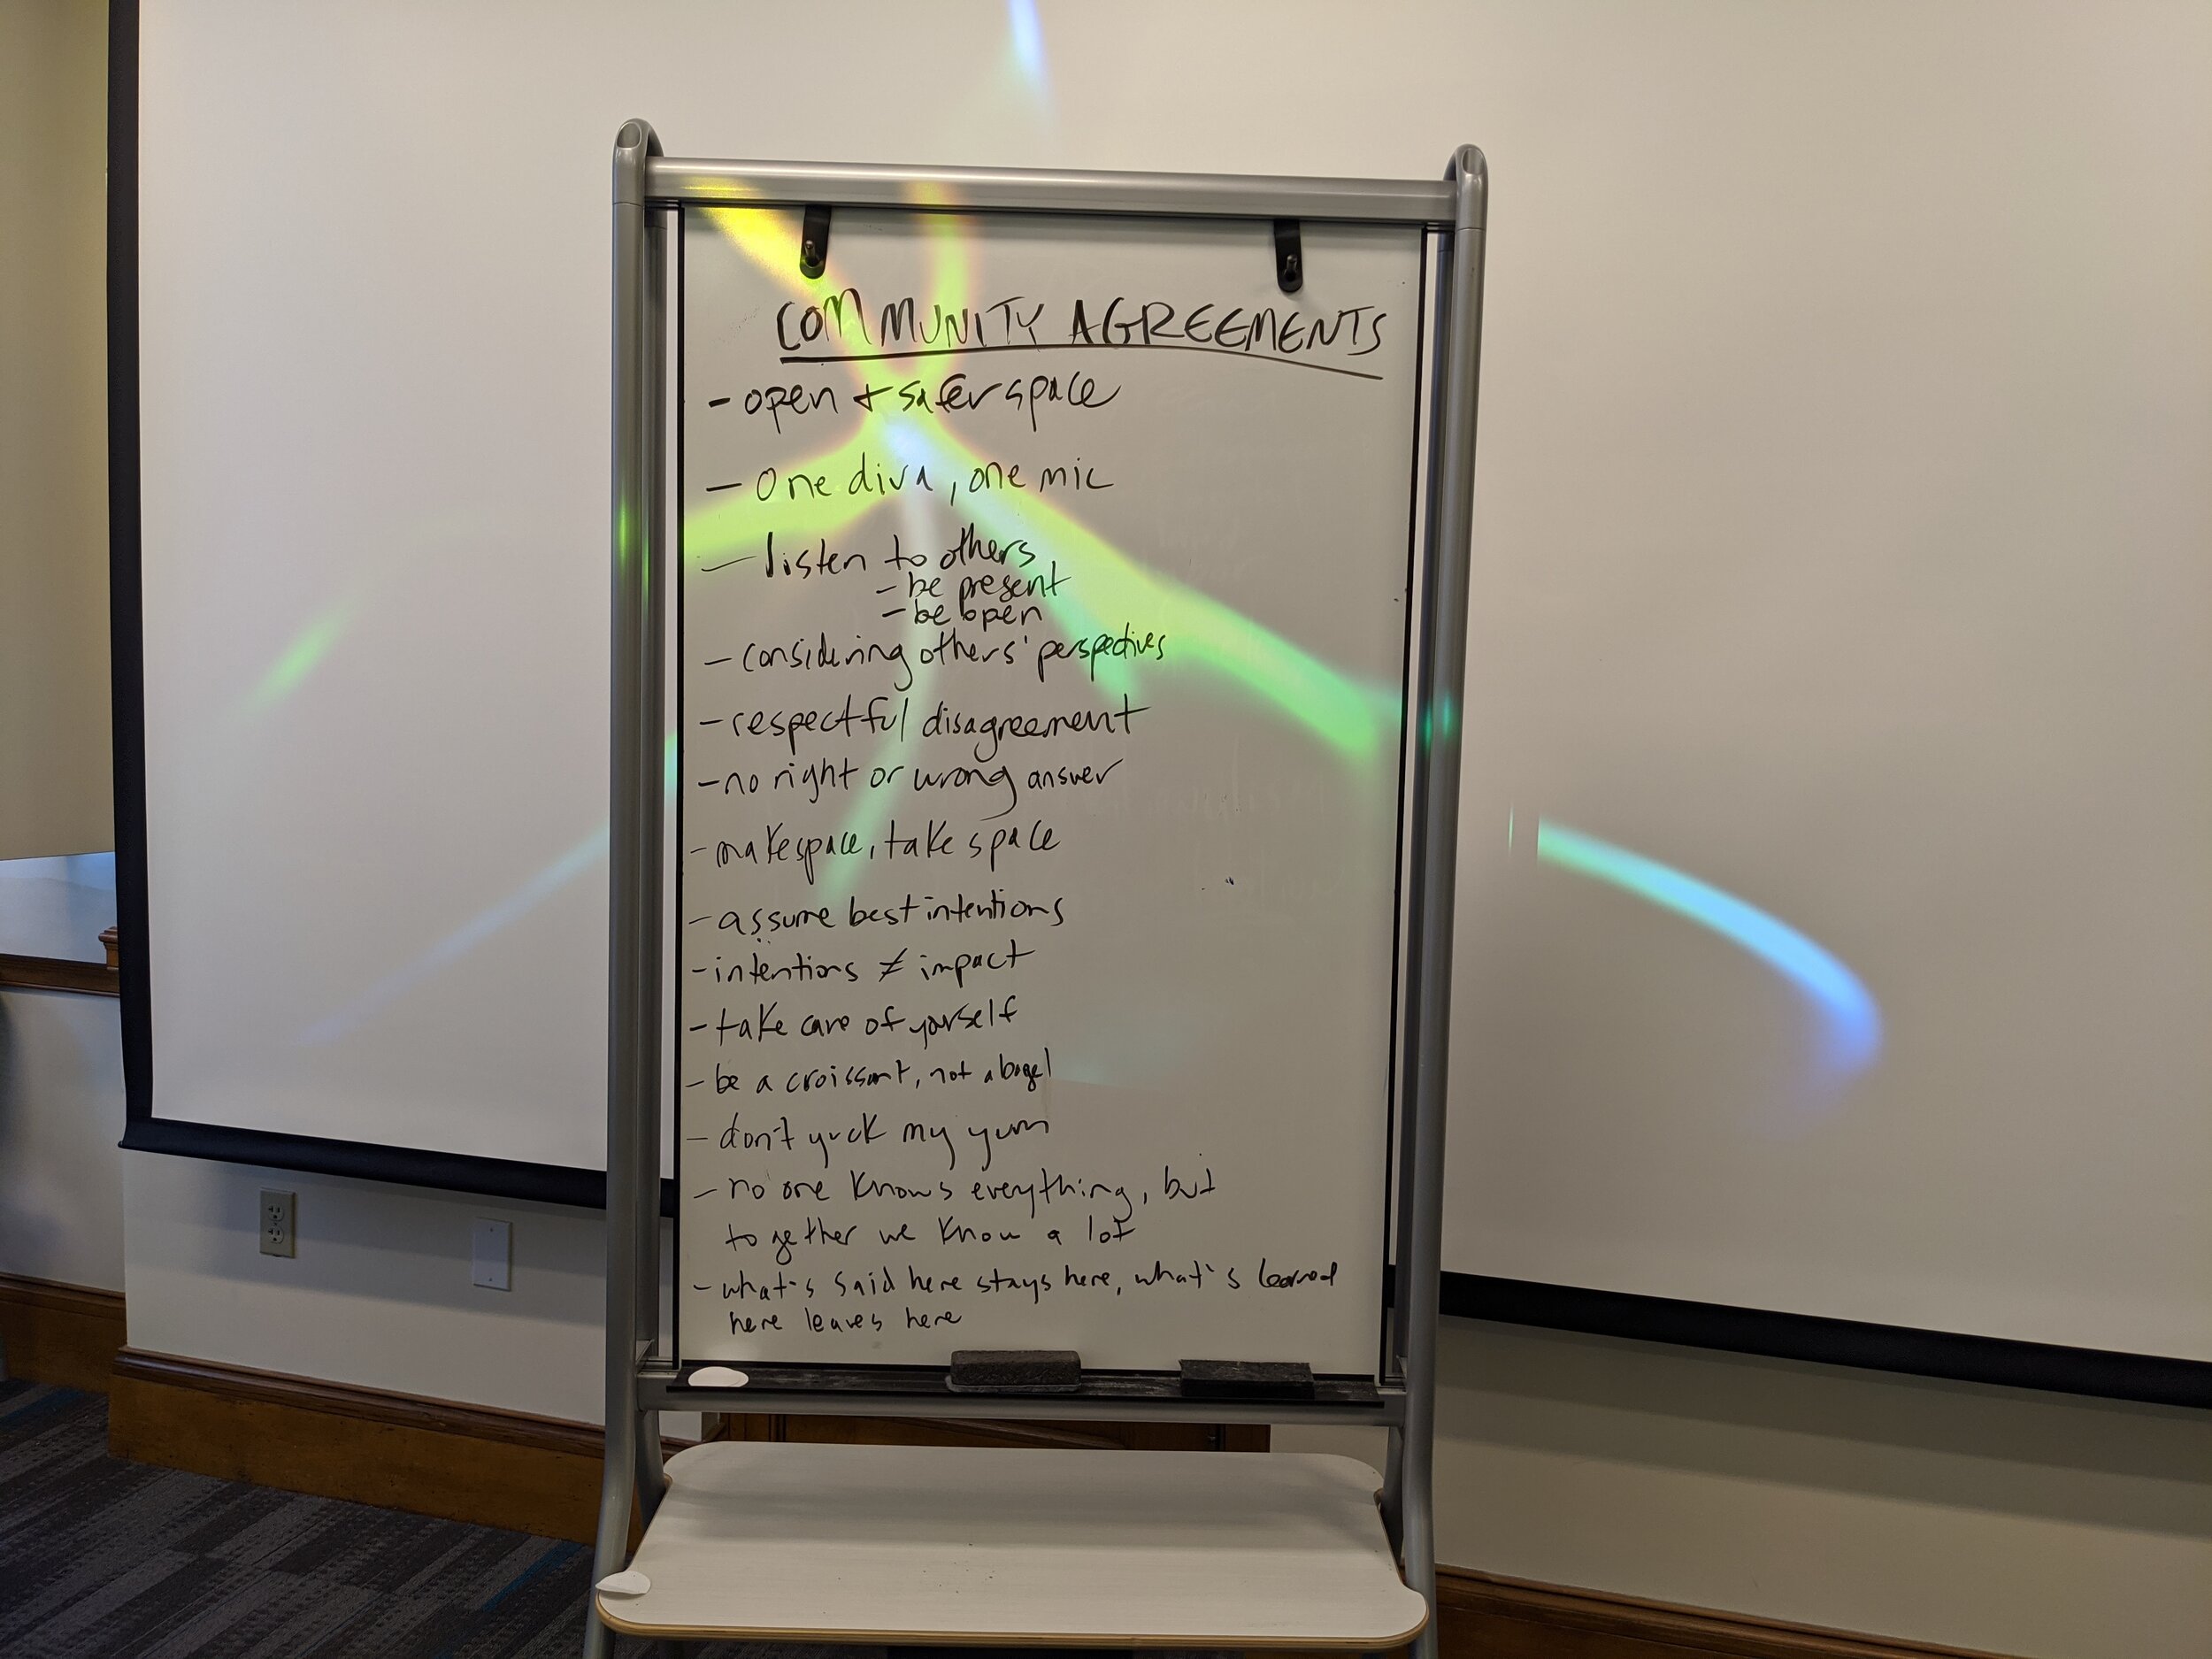 COMMUNITY AGREEMENTS
- open + safer space
- One diva, one mic
- listen to others
- be present
- be open
- considering others' perspectives
- respectful disagreement
- no right or wrong answer
- make space, take space
- assume best intentions
- intentions ≠ impact
- take care of yourself
- be a croissant, not a bagel
- don't yuck my yum
- no one knows everything, but
together we know a lot
- what's said here stays here, what's learned
here leaves here